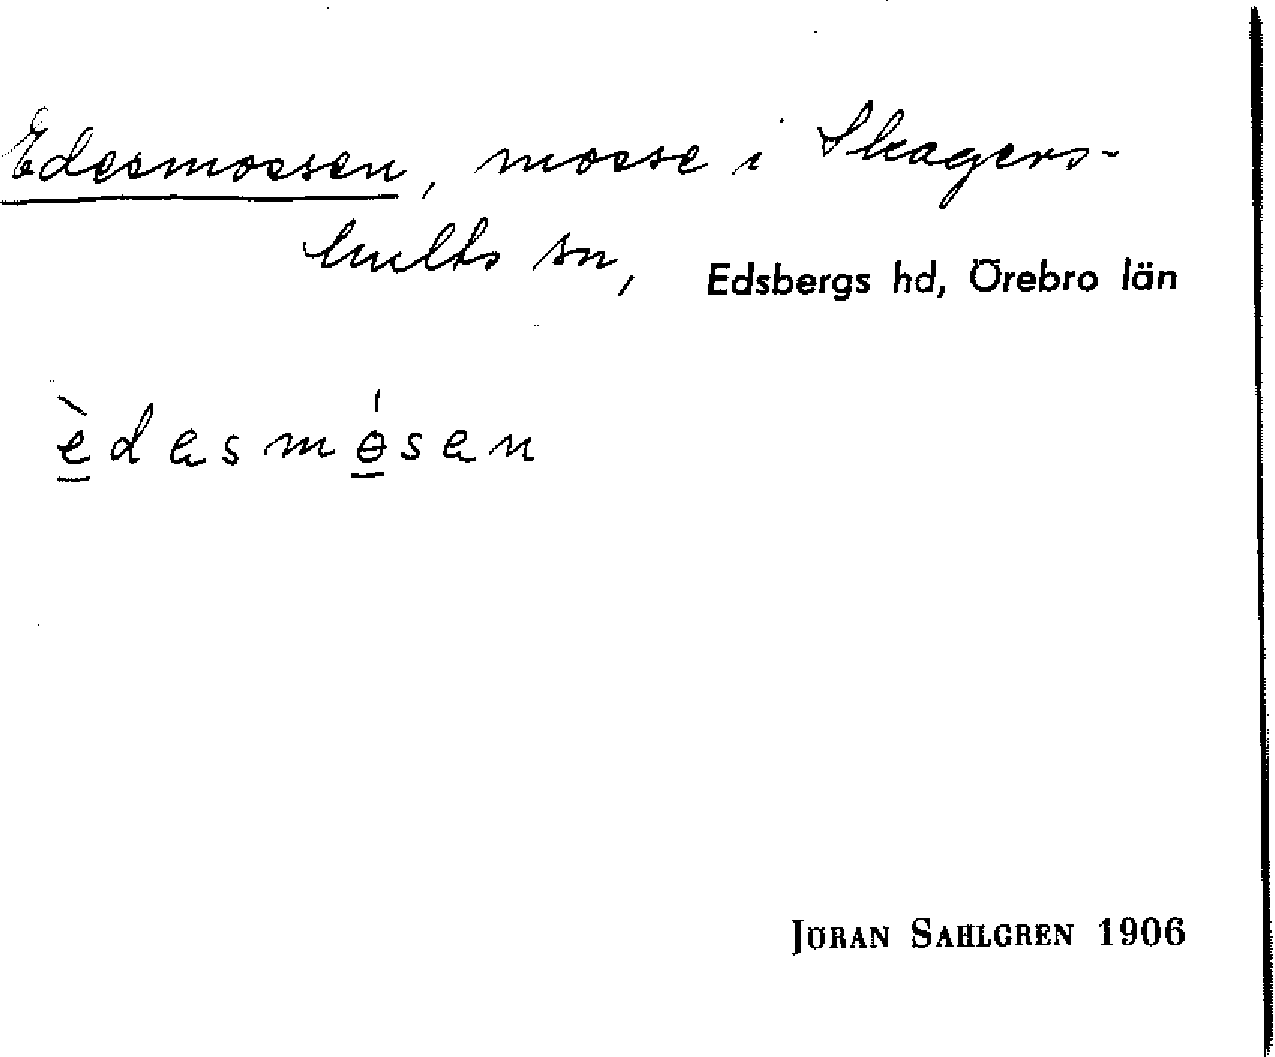 Edesmossen, mosse i Skagers-
hults sn, Edsbergs hd, Örebro län
èdesmósen
JÖRAN SAHLGREN 1906